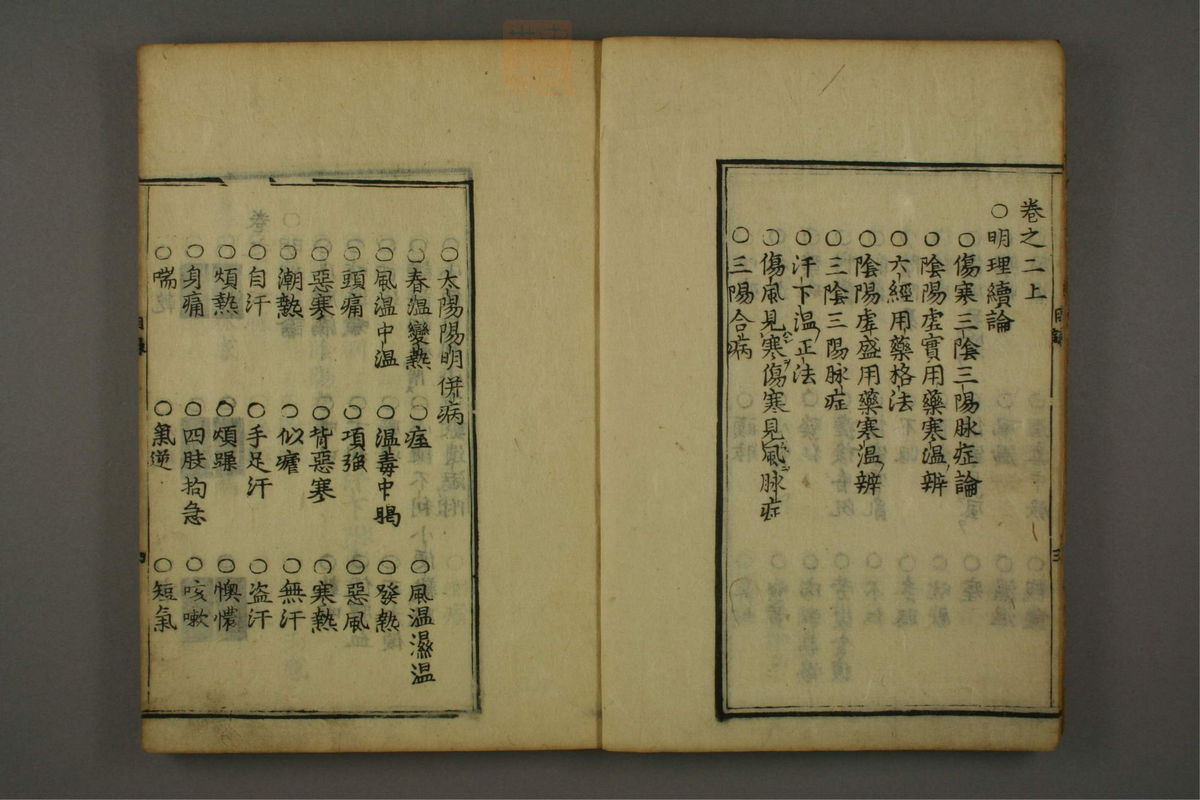 卷之二上
○明理續論
○傷寒三陰三陽脉症論
○陰陽虛實用藥寒温辨
○六經用藥格法
○陰陽虛盛用藥寒温辨
○三陰三陽脉症
○汗下温正法
○傷風見寒傷寒見風脉症
○三陽合病
目錄
三
○太陽陽明併病
○春温變熱 ○痓 ○風温濕温
○風温中温 ○温毒中暍 ○發熱
○頭痛 ○項強 ○惡風
○惡寒 ○背惡寒 ○寒熱
○潮熱 ○似瘧 ○無汗
○自汗 ○手足汗 ○盗汗
○煩熱 ○煩躁 ○懊憹
○身痛 ○四肢拘急 ○咳嗽
○喘 ○氣逆 ○短氣
目錄